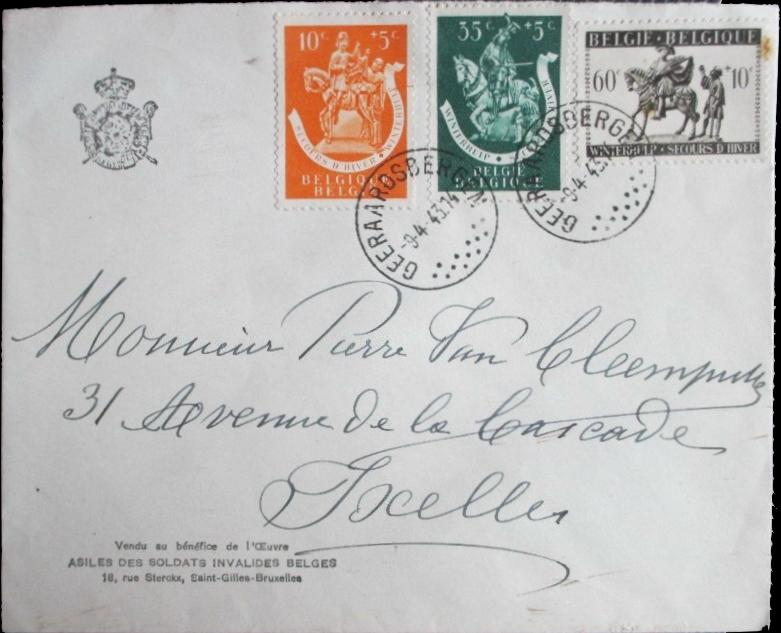 10c +5c
SECOURS D'HIVER • WINTERHULP
BELGIQUE
BELGIË
35c +5c
WINTERHULP • SECOURS D'HIVER
BELGIË
BELGIQUE
BELGIE•BELGIQUE
60c +10c
WINTERHULP • SECOURS D'HIVER
GEERAARDSBERGEN
-9-4-43.14
GEERAARDSBERGEN
-9-4-43.14
Monsieur Pierre Van Cleemputte
31 Avenue de la Cascade
Ixelles
Vendu au bénéfice de l'Œuvre
ASILES DES SOLDATS INVALIDES BELGES
18, rue Sterckx, Saint-Gilles-Bruxelles